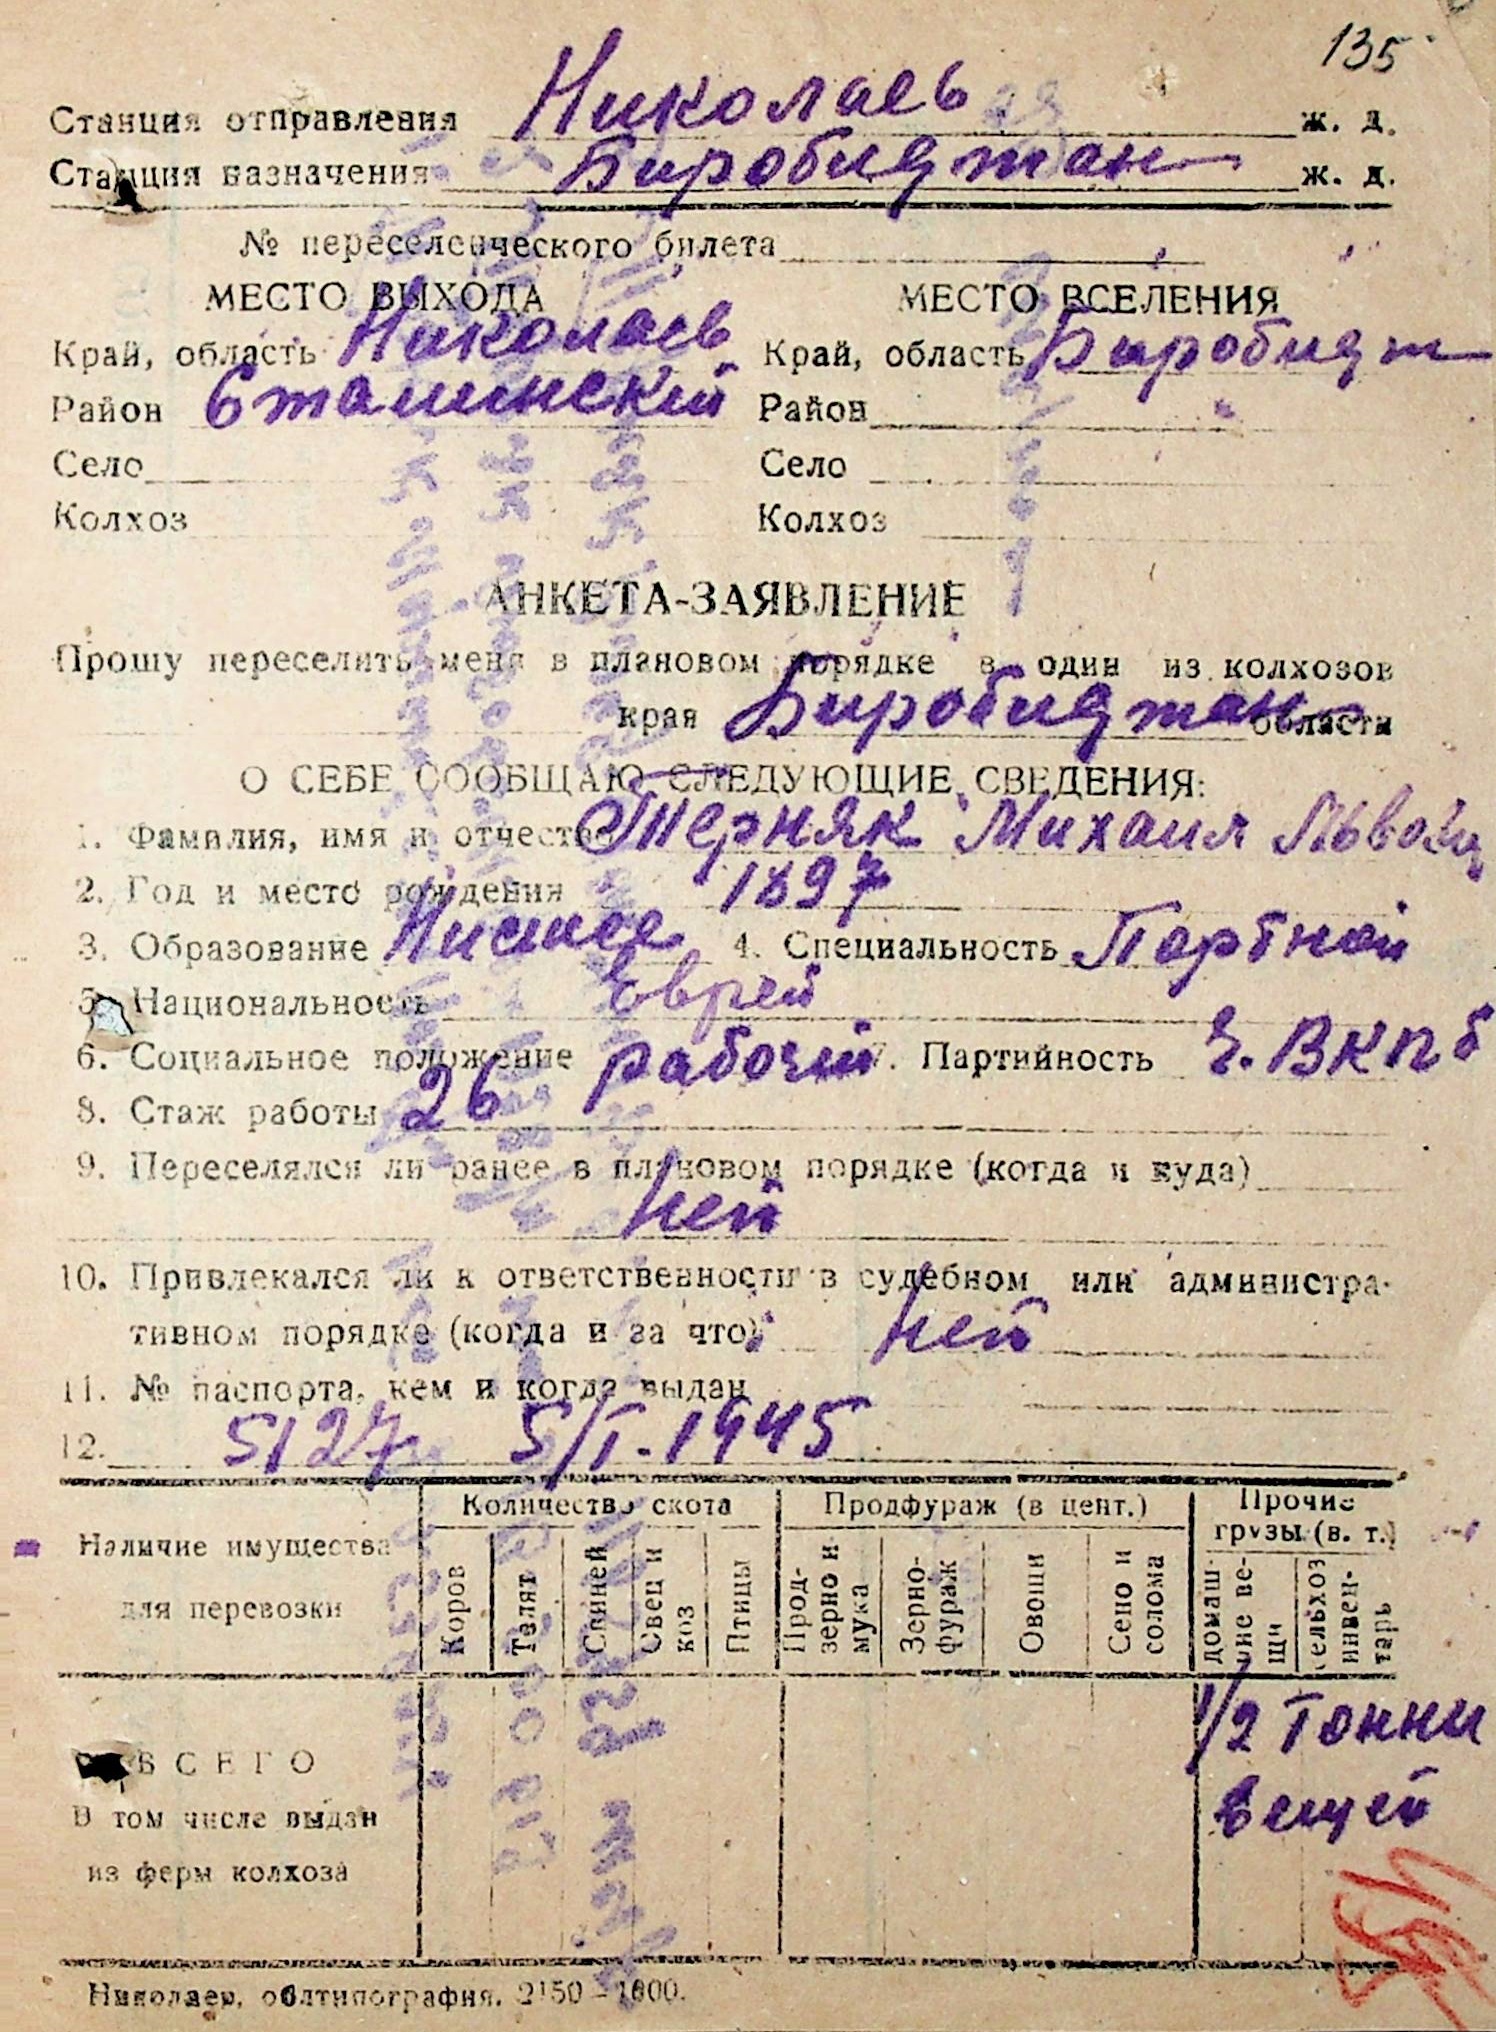 135
Станция отправления Николаев ж. д.
Станция назначения Биробиджан ж. д.
№ переселенческого билета
МЕСТО ВЫХОДА МЕСТО ВСЕЛЕНИЯ
Край, область Николаев Край, область Биробидж
Район Сталинский Район
Село Село
Колхоз Колхоз
АНКЕТА-ЗАЯВЛЕНИЕ
Прошу переселить меня в плановом порядке в один из колхозов
края Биробиджан области
О СЕБЕ СООБЩАЮ СЛЕДУЮЩИЕ СВЕДЕНИЯ:
1. Фамилия, имя и отчество Терняк Михаил Львович
2. Год и место рождения 1897
3. Образование Нисшее 4. Специальность Портной
5. Национальность Еврей
6. Социальное положение рабочий 7. Партийность Ч. ВКПб
8. Стаж работы 26
9. Переселялся ли ранее в плановом порядке (когда и куда)
нет
10. Привлекался ли к ответственности в судебном или администра-
тивном порядке (когда и за что) нет
11. № паспорта, кем и когда выдан
12. 5127 5/I.1945
Количество скота Продфураж (в цент.) Прочие
грузы (в. т.)
Наличие имущества
для перевозки
Коров Телят Свиней Овец и коз Птицы Прод-зерно и мука Зерно-фураж Овощи Сено и солома домаш-ние ве-щи сельхоз инвен-тарь
ВСЕГО 1/2 Тонни
вещей
В том числе выдан
из ферм колхоза
Николаев, облтипография. 2150-1000.